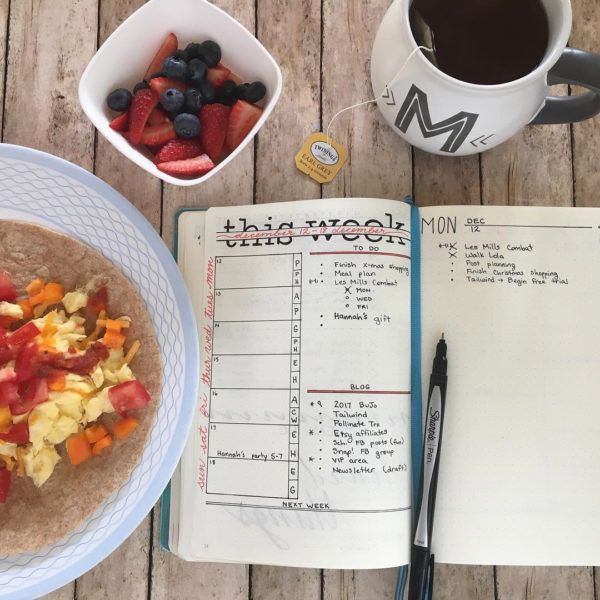 M
TWININGS
EARL GREY
this week
december 12-18 december
MON DEC
12
TO DO
Finish X-mas shopping
Meal plan
Les Mills Combat
X MON
o WED
o FRI
Hannah's gift
BLOG
2017 BuJo
Tailwind
Pollinate Trx
Etsy affiliates
Sch. FB posts (fun)
Snap! FB group
VIP area
Newsletter (draft)
mon
tues
wed
thur
fri
sat
sun
12 P
PH
13 A
P
14 G
PH
15 E
H
16 A
CW
17 E
Hannah's party 5-7 H
18 E
G
NEXT WEEK
X Les Mills Combat
X Walk Lela
Post planning
Finish Christmas shopping
Tailwind → Begin free trial
Sharpie Pen